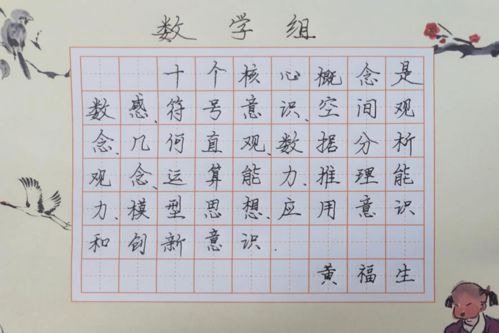 数学组
十个核心概念是
数感、符号意识、空间观
念、几何直观、数据分析
观念、运算能力、推理能
力、模型思想、应用意识
和创新意识.
黄福生